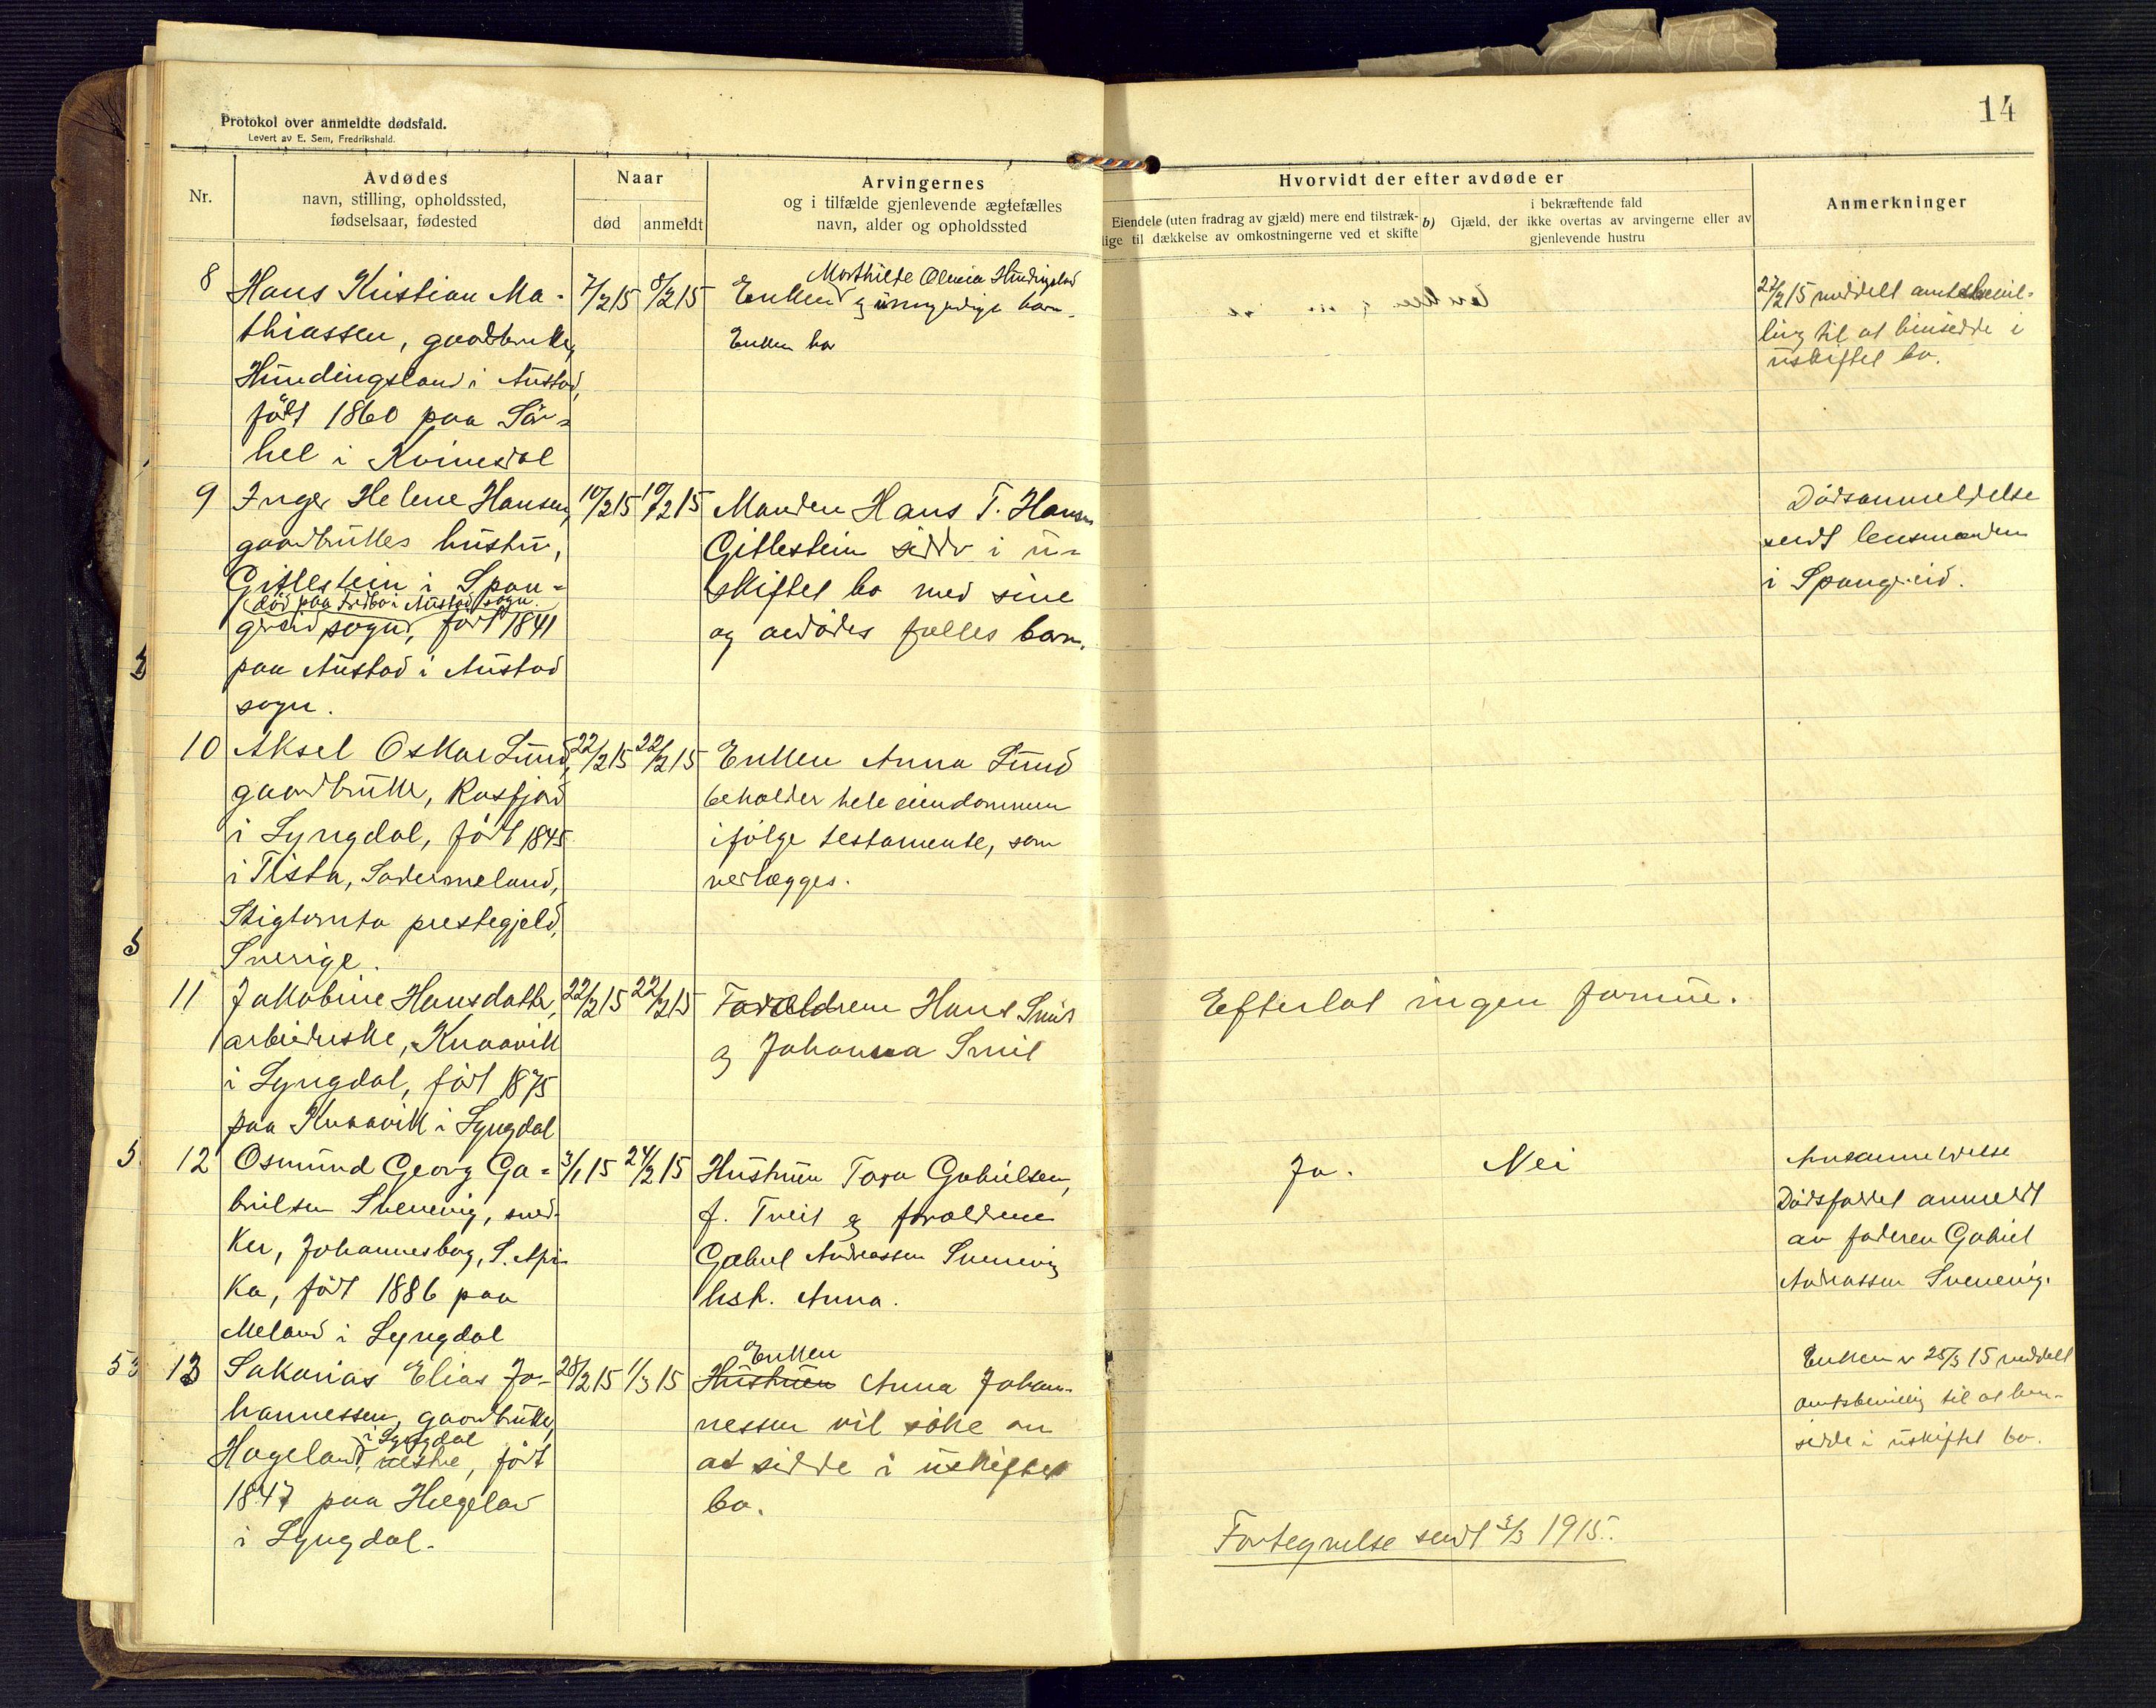 Protokol over anmeldte dødsfald.
Levert av E. Sem, Fredrikshald.
14
Nr.
Avdødes
navn, stilling, opholdssted,
fødselsaar, fødested
Naar
død
anmeldt
Arvingernes
og i tilfælde gjenlevende ægtefælles
navn, alder og opholdssted
Hvorvidt der efter avdøde er
Eiendele (uten fradrag av gjæld) mere end tilstræk-
lige til dækkelse av omkostningerne ved et skifte
b) Gjæld, der
i bekræftende fald
ikke overtas av arvingerne eller av
gjenlevende hustru
Anmerkninger
8
Hans Kristian Ma-
thiassen, gaardbruker,
Hundingsland i Austad,
født 1860 paa
hel i Kvinesdal
7/2 15
8/2 15
Mathilde Hundingsland
Enken og umyndige barn.
Enken har
27/2 15 meddelt amtsbevil-
ling til at hensidde i
uskiftet bo.
9
Inger Helene Hansen,
gaardbrukers hustru,
Gitlestein i Span-
(død paa i Austad sogn.
gereid sogn, født 1841
paa Austad i Austad
sogn.
10/2 15
10/2 15
Manden Hans T. Hansen
Gitlestein sidder i u-
skiftet bo med sine
og avdødes fælles barn.
Dødsanmeldelse
sendt lensmanden
i Spangereid.
10
Aksel Oskar Lund,
gaardbruker, Rosfjord
i Lyngdal, født 1845
i Tista, Södermeland,
Stigtomta prestegjeld,
Sverige.
22/2 15
22/2 15
Enken Anna Lund
beholder hele eiendommen
ifølge testamente, som
verlægges.
11
Jakobine Hansdatter,
arbeiderske, Kvaavik
i Lyngdal, født 1875
paa Kvaavik i Lyngdal
22/2 15
22/2 15
Forældrene Hans
og Johanna
Efterlot ingen formue.
5
12
Osmund Georg Ga-
brielsen Svenevig, sned-
ker, Johannesborg, S. Afri-
ka, født 1886 paa
Meland i Lyngdal
3/1 15
24/2 15
Hustruen Tora Gabrielsen,
f. Treit og forældrene
Gabriel Andreassen Svenevig
hst. Anna.
Ja.
Nei
Dødsfaldet anmeldt
av faderen Gabriel
Andreassen Svenevig.
13
Sakarias Elias Jo-
hannessen, gaardbruker,
i Lyngdal
Hageland, vestre, født
1847 paa Hægeland
i Lyngdal.
28/2 15
1/3 15
Enken
Hustruen Anna Johan-
nessen vil søke om
at sidde i uskiftet
bo.
Enken er 25/3 15 meddelt
amtsbevillig til at hen-
sidde i uskiftet bo.
Fortegnelse sendt 3/3 1915.